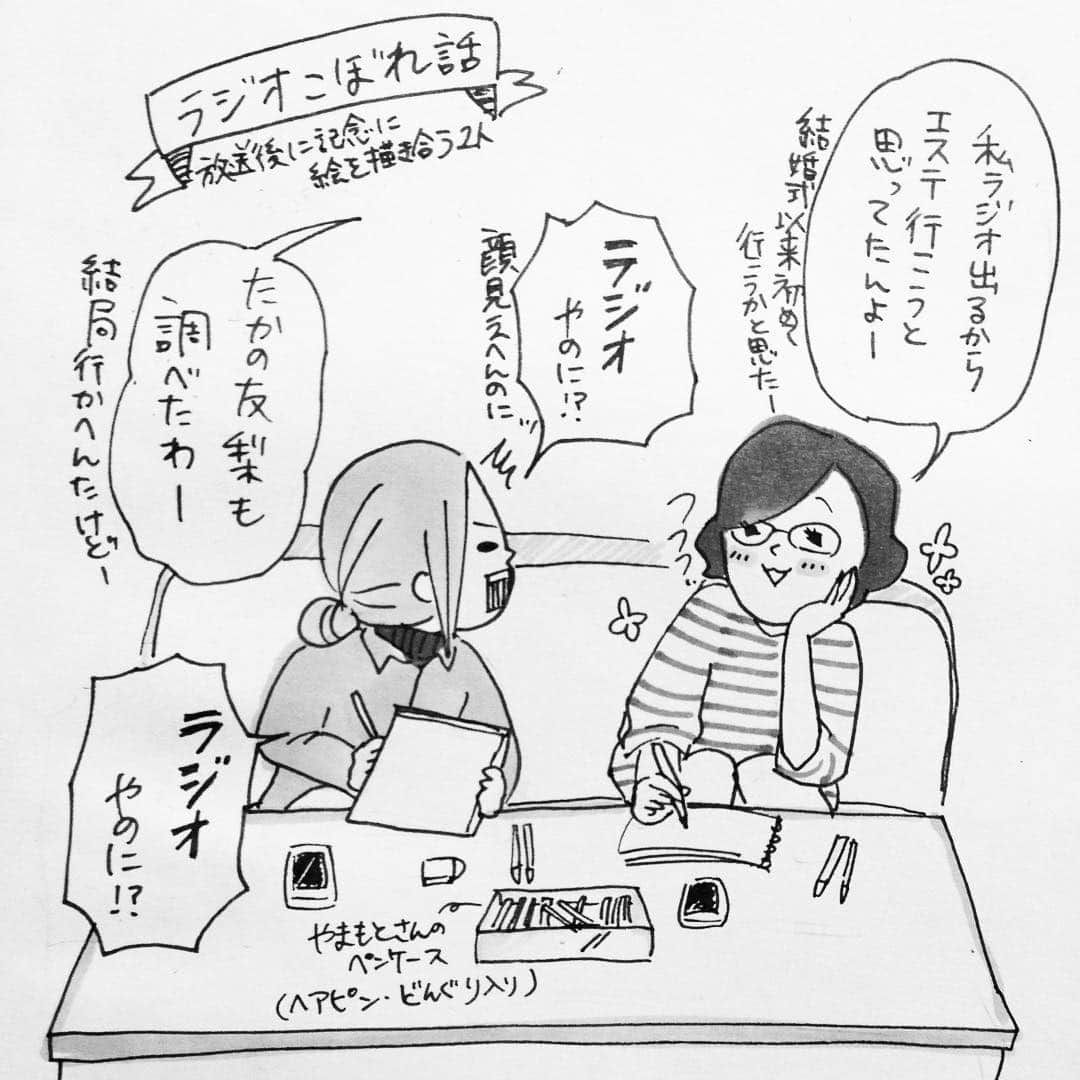 ラジオこぼれ話
放送後に記念に
絵を描き合う2人
私ラジオ出るから
エステ行こうと
思ってたんよー
結婚式以来初めて
行こうかと思たー
ラジオ
やのに!?
顔見えへんのに
たかの友梨も
調べたわー
結局行かへんたけどー
ラジオ
やのに!?
やまもとさんの
ペンケース
(ヘアピン・どんぐり入り)